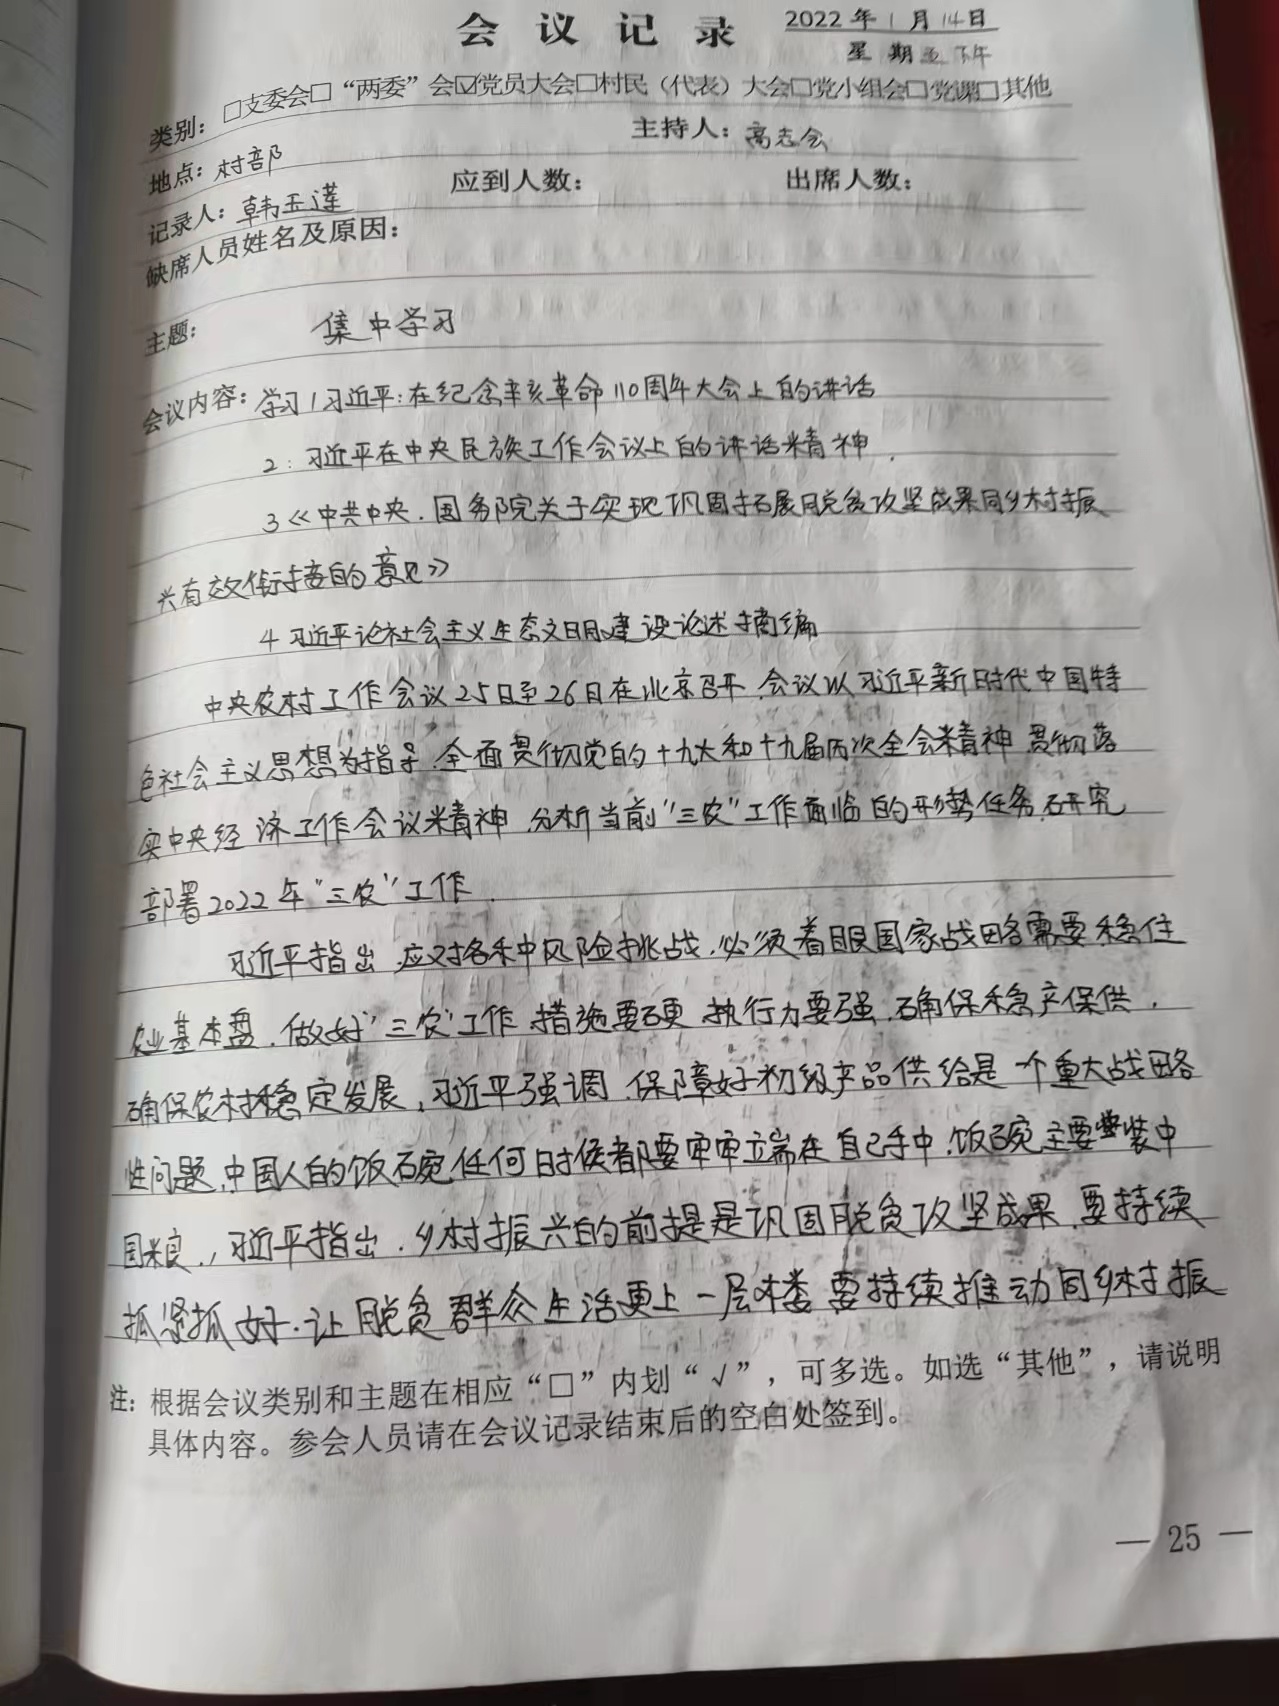 会议记录 2022年1月14日
星期五下午
类别：□支委会□“两委”会☑党员大会□村民（代表）大会□党小组会□党课□其他
地点：村部 主持人：高志会
记录人：韩玉莲 应到人数： 出席人数：
缺席人员姓名及原因：
主题： 集中学习
会议内容：学习1习近平：在纪念辛亥革命110周年大会上的讲话
2：习近平在中央民族工作会议上的讲话精神．
3《中共中央．国务院关于实现巩固拓展脱贫攻坚成果同乡村振
兴有效衔接的意见》
4 习近平论社会主义生态文明建设论述摘编
中央农村工作会议25日至26日在北京召开．会议以习近平新时代中国特
色社会主义思想为指导．全面贯彻党的十九大和十九届历次全会精神．贯彻落
实中央经济工作会议精神．分析当前“三农”工作面临的形势任务．研究
部署2022年“三农”工作．
习近平指出．应对各种风险挑战．必须着眼国家战略需要稳住
农业基本盘．做好“三农”工作．措施要硬．执行力要强．确保稳产保供．
确保农村稳定发展．习近平强调．保障好初级产品供给是一个重大战略
性问题．中国人的饭碗任何时侯都要牢牢端在自己手中．饭碗主要装中
国粮．，习近平指出．乡村振兴的前提是巩固脱贫攻坚成果．要持续
抓紧抓好．让脱贫群众生活更上一层楼．要持续推动同乡村振
注：根据会议类别和主题在相应“□”内划“√”，可多选。如选“其他”，请说明
具体内容。参会人员请在会议记录结束后的空白处签到。
— 25 —